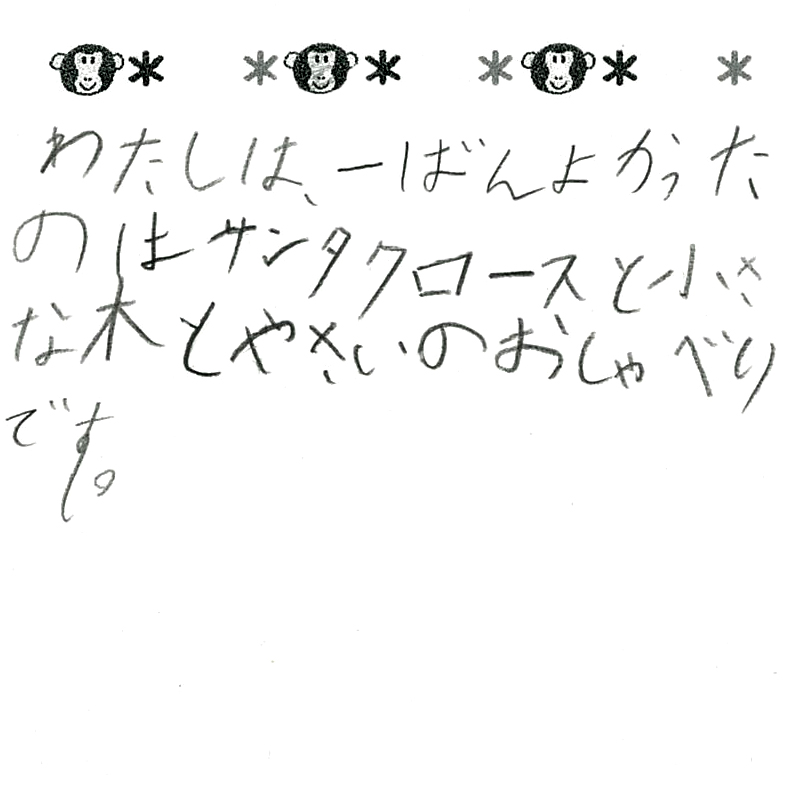 わたしは、一ばんよかった
のはサンタクロースと小さ
な木とやさいのおしゃべり
です。